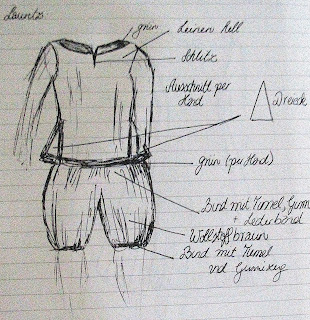 grün
Leinen hell
Schlitz
Ausschnitt per
Hand
Dreieck
grün (per Hand)
Bund mit Tunnel, Gummi
+ Lederband
Wollstoff braun
Bund mit Tunnel
und Gummizug